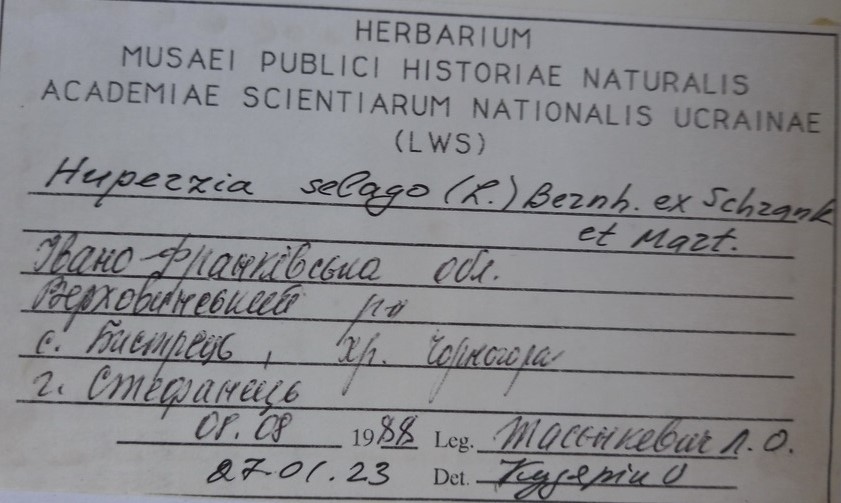 HERBARIUM
MUSAEI PUBLICI HISTORIAE NATURALIS
ACADEMIAE SCIENTIARUM NATIONALIS UCRAINAE
(LWS)
Huperzia selago (L.) Bernh. ex Schrank
et Mart.
Івано-Франківська обл.
Верховинський р-н
с. Бистрець, хр. Чорногора
г. Стефанець
08.08 1988 Leg. Тасєнкевич Л. О.
27.01.23 Det.